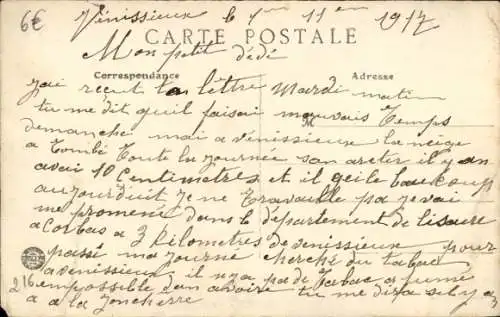 6€
Vénissieux le 11 1917
CARTE POSTALE
Mon petit dédé
Correspondance
Adresse
jai reçut ta lettre Mardi matin
tu me dit quil faisai mauvais Temps
M
demanche mai a vénissieux la neige
a Tombé Toute la journee san areter il y an
avai 10 Centimetres et il gele baucoup
aujourduit je ne travaille pa je vai
me promené dans le département de lisaere
a Corbas a 3 kilometres de venissieux pour
passé ma journe cherché du tabac
a venissieux il nya pa de Tabac a fumé
216
empossible dan avoire tu me dira sil y a
a a la Joncherre